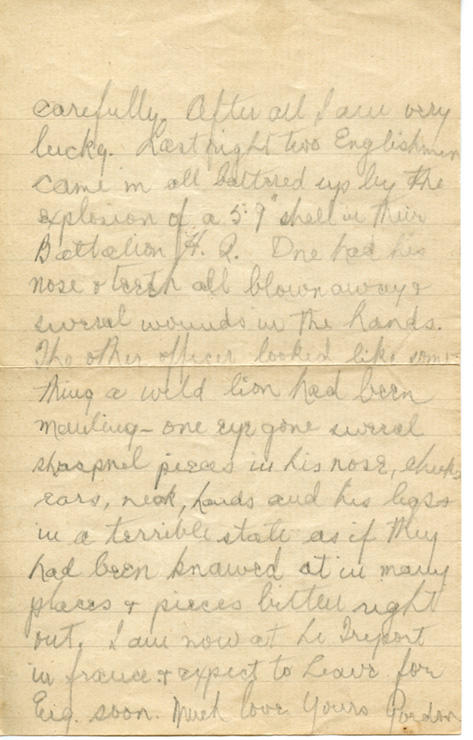 carefully. After all I am very
lucky. Last night two Englishmen
came in all battered up by the
explosion of a 5.9" shell in their
Battalion H. Q. One had his
nose & teeth all blown away &
several wounds in the hands.
The other officer looked like some-
thing a wild lion had been
mauling - one eye gone several
shrapnel pieces in his nose, cheeks
ears, neck, hands and his legs
in a terrible state as if they
had been knawed at in many
places & pieces bitten right
out. I am now at Le Treport
in france & expect to leave for
Eng. soon. Much love Yours Gordon